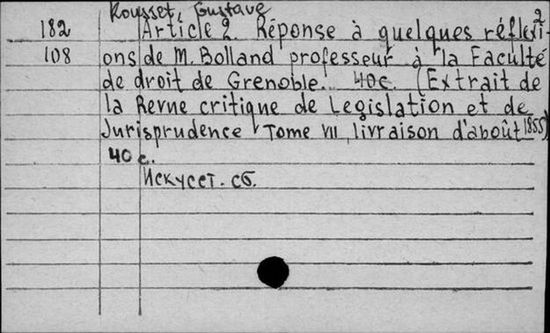 Rousset, Gustave
2
182 Article 2. Réponse à quelques réflexi-
108 ons de M. Bolland professeur à la Faculté
de droit de Grenoble. 40c. (Extrait de
la Revue critique de Legislation et de
Jurisprudence Tome VII, livraison d'août 1855)
40 c.
Искусст. сб.